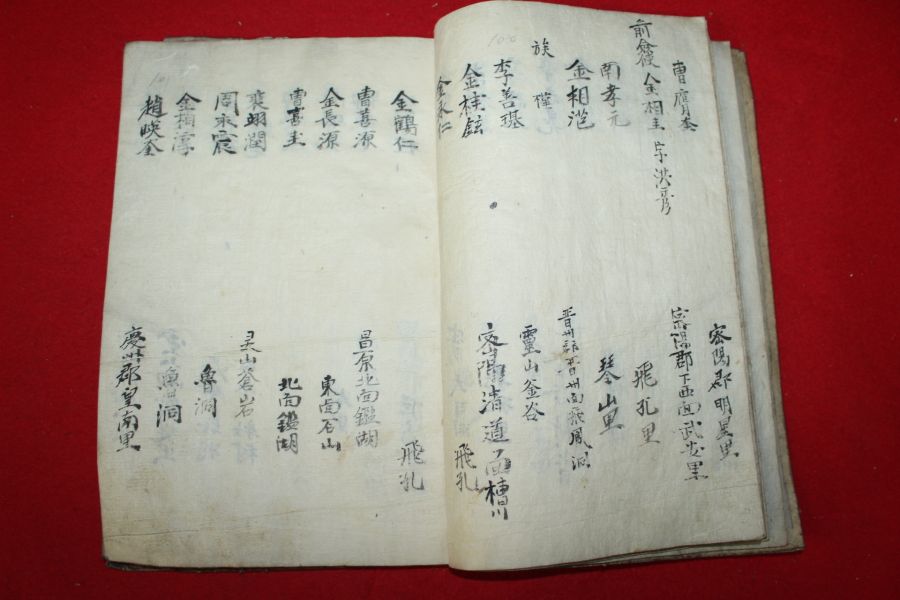 曺
密陽郡明星里
前参 金相圭 字洪
密陽郡下西面武安里
南孝元
飛孔里
金相范
琴山里
族
晋州郡晋州面飛鳳洞
李善
靈山釜谷
金鉉
密陽清道面槽川
金永仁
飛孔
金鶴仁
飛孔
曺喜源
昌原北面鑑湖
金長源
東面石山
曺喜圭
北面鑑湖
裵翊潤
灵山蒼岩
周永震
魯洞
金相淳
魯洞
趙映奎
慶州郡皇南里